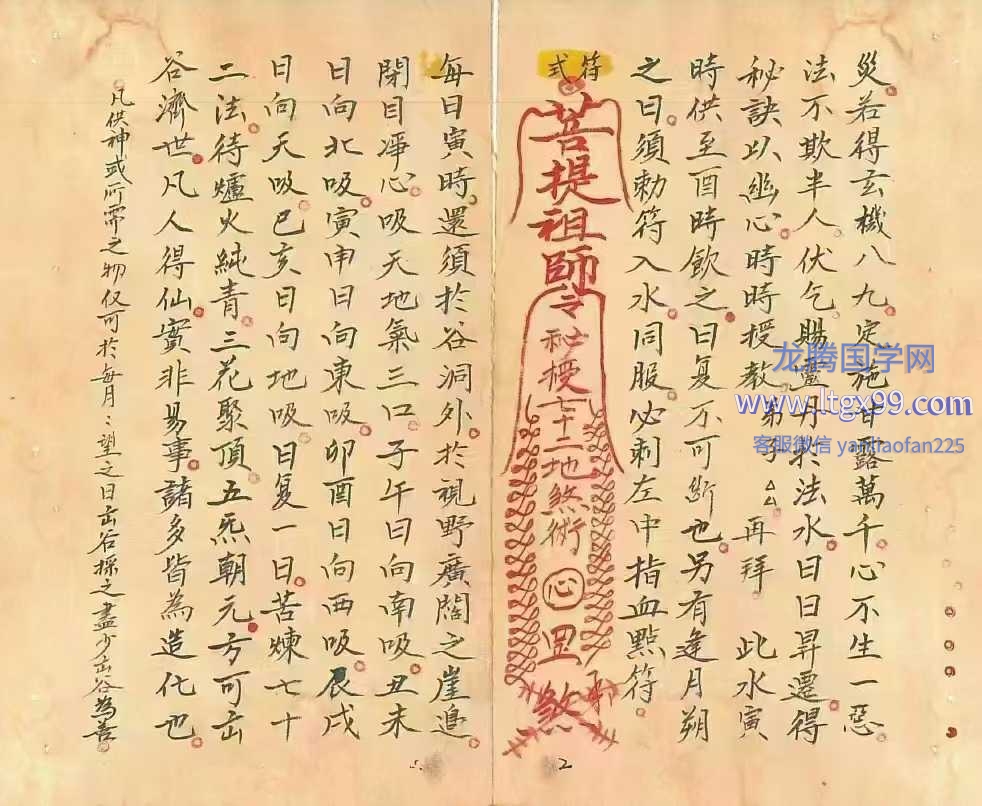 災若得玄機八九定施甘露萬千心不生一惡
法不欺半人伏乞賜靈丹於法水日日昇遷得
秘訣以幽心時時授教弟子△△再拜 此水寅
時供至酉時飲之日复不可斷也另有逢月朔
之日須勅符入水同服必刺左中指血點符
符式
菩提祖師令秘授七十二地煞術心罡煞
每日寅時還須於谷洞外於視野廣闊之崖邊
閉目淨心吸天地氣三口子午日向南吸丑未
日向北吸寅申日向東吸卯酉日向西吸辰戌
日向天吸巳亥日向地吸日复一日苦煉七十
二法待爐火純青三花聚頂五炁朝元方可出
谷濟世凡人得仙實非易事諸多皆為造化也
凡供神或所需之物仅可於每月:望之日出谷採之盡少出谷為善
2
龙腾国学网
www.ltgx99.com
客服微信 yantiaofan225